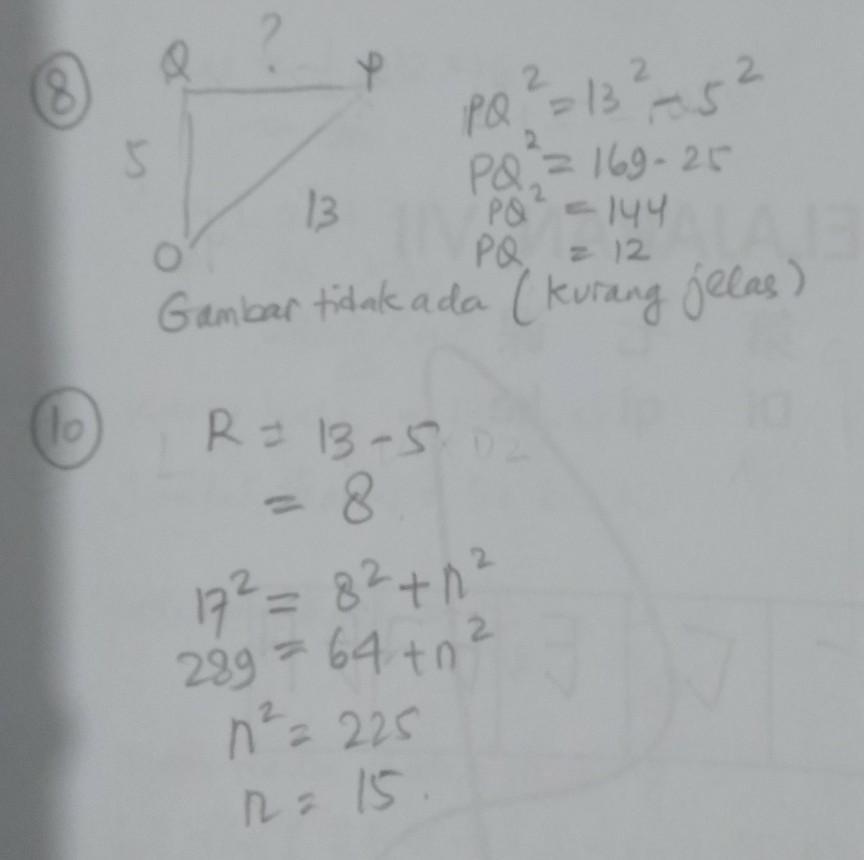 8
Q ? P
5
13
O
PQ² = 13² - 5²
PQ² = 169 - 25
PQ² = 144
PQ = 12
Gambar tidak ada (kurang jelas)
10
R = 13 - 5
= 8
17² = 8² + n²
289 = 64 + n²
n² = 225
n = 15.